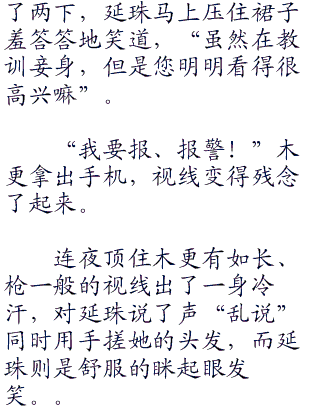 了两下，延珠马上压住裙子
羞答答地笑道，“虽然在教
训妾身，但是您明明看得很
高兴嘛”。
“我要报、报警！”木
更拿出手机，视线变得残念
了起来。
连夜顶住木更有如长、
枪一般的视线出了一身冷
汗，对延珠说了声“乱说”
同时用手搓她的头发，而延
珠则是舒服的眯起眼发
笑。。